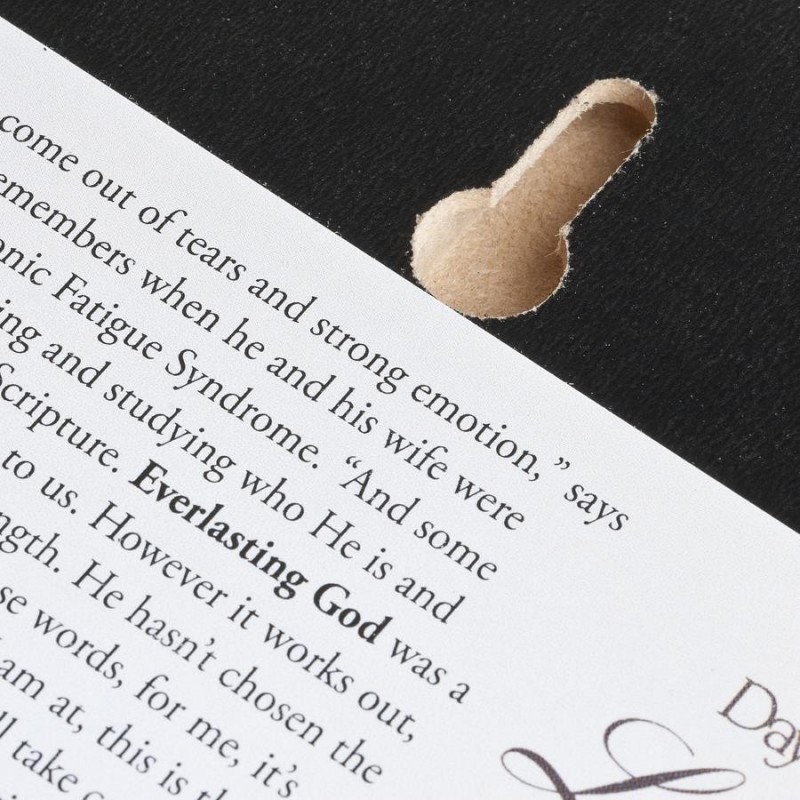 come out of tears and strong emotion,” says
emembers when he and his wife were
onic Fatigue Syndrome. “And some
ing and studying who He is and
Scripture. Everlasting God was a
to us. However it works out,
ngth. He hasn’t chosen the
se words, for me, it’s
am at, this is th
ll take
Day